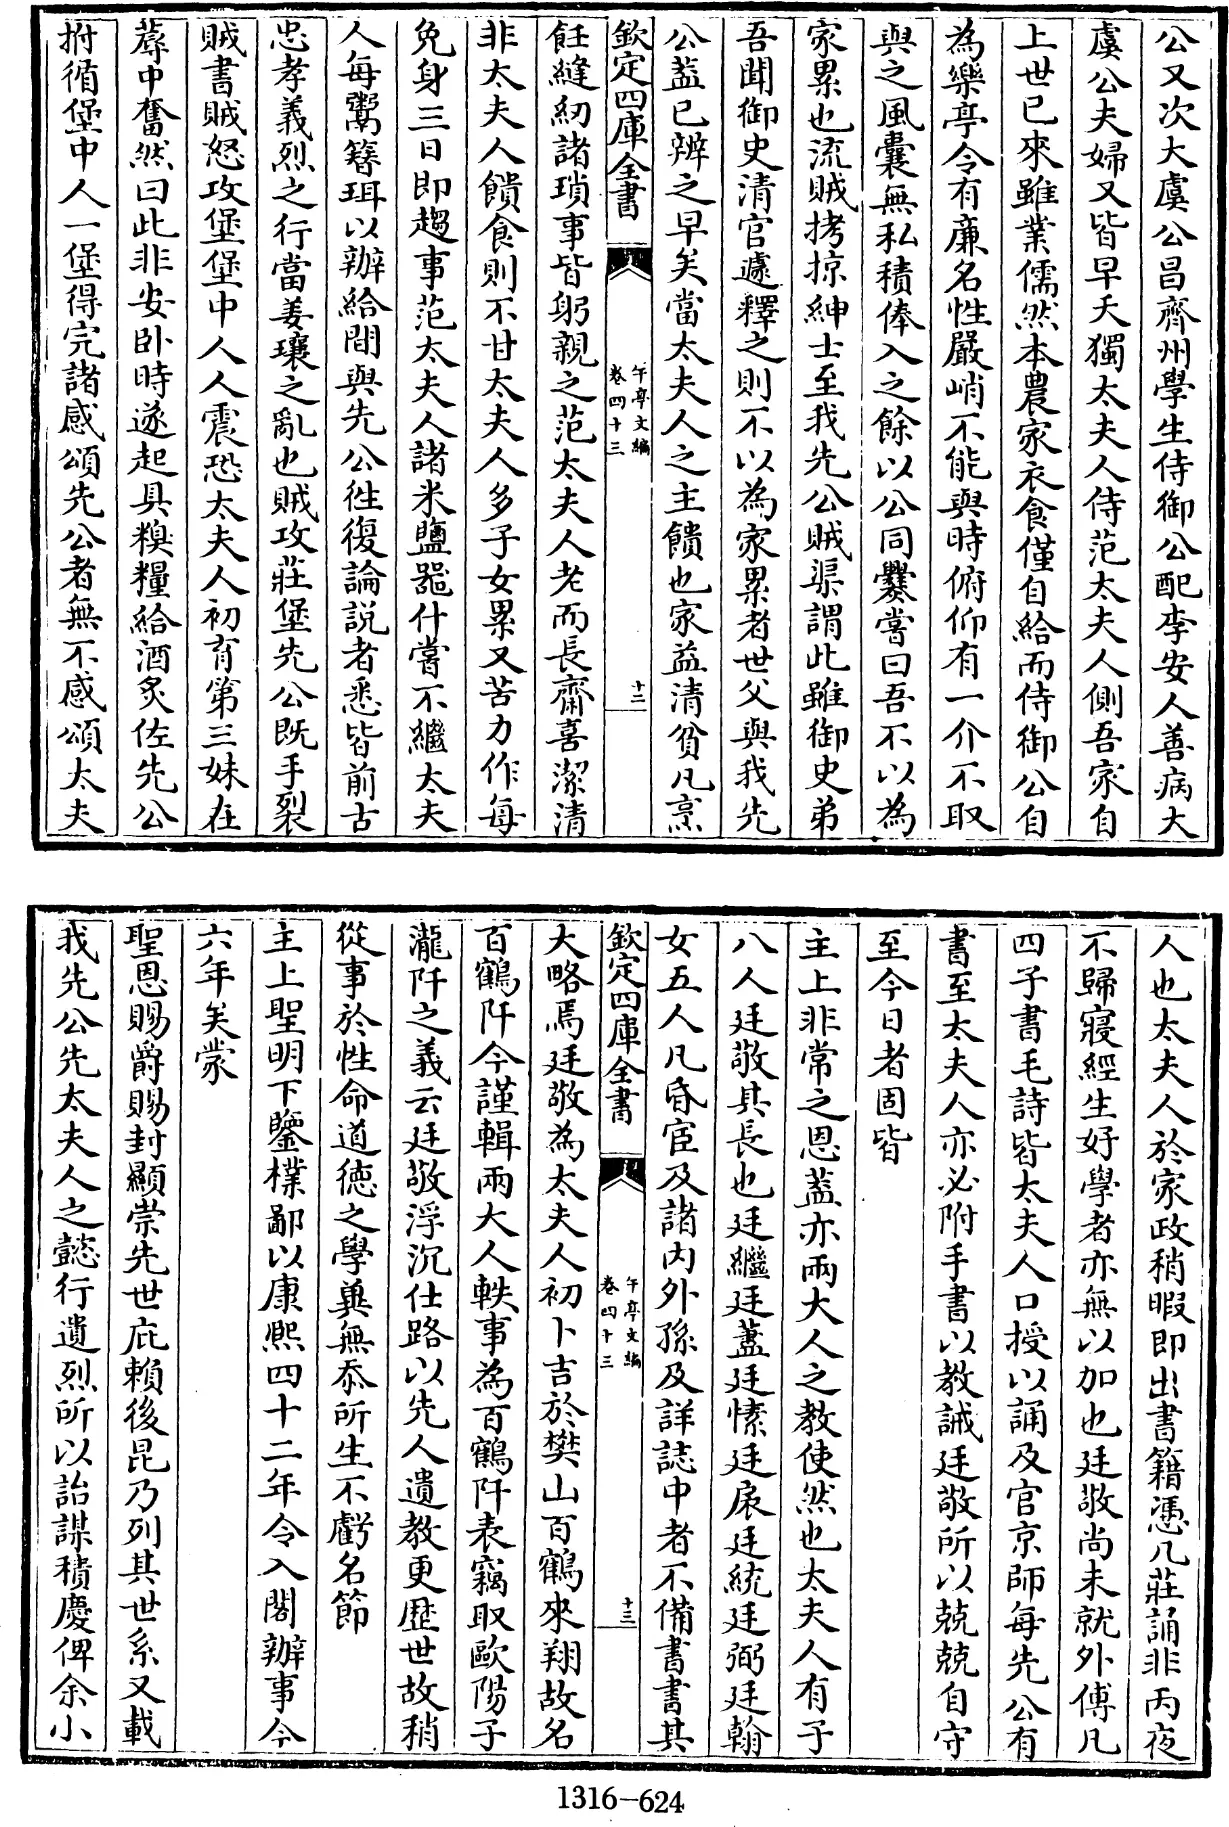 公又次大虞公昌齊州學生侍御公配李安人善病大
虞公夫婦又皆早夭獨太夫人侍范太夫人側吾家自
上世已來雖業儒然本農家衣食僅自給而侍御公自
為樂亭令有廉名性嚴峭不能與時俯仰有一介不取
與之風囊無私積俸入之餘以公同爨嘗曰吾不以為
家累也流賊拷掠紳士至我先公賊渠謂此雖御史弟
吾聞御史清官遽釋之則不以為家累者世父與我先
公葢已辨之早矣當太夫人之主饋也家益清貧凡烹
欽定四庫全書
午亭文編
卷四十三
十二
飪縫紉諸瑣事皆躬親之范太夫人老而長齋喜潔清
非太夫人饋食則不甘太夫人多子女累又苦力作每
免身三日即趨事范太夫人諸米鹽噐什嘗不繼太夫
人每鬻簪珥以辦給間與先公徃復論説者悉皆前古
忠孝義烈之行當姜瓖之亂也賊攻莊堡先公既手裂
賊書賊怒攻堡堡中人人震恐太夫人初育第三妹在
蓐中奮然曰此非安卧時遂起具糗糧給酒炙佐先公
拊循堡中人一堡得完諸感頌先公者無不感頌太夫
人也太夫人於家政稍暇即出書籍憑几莊誦非丙夜
不歸寢經生好學者亦無以加也廷敬尚未就外傅凡
四子書毛詩皆太夫人口授以誦及官京師每先公有
書至太夫人亦必附手書以教誡廷敬所以兢兢自守
至今日者固皆
主上非常之恩葢亦兩大人之教使然也太夫人有子
八人廷敬其長也廷繼廷藎廷愫廷扆廷統廷弼廷翰
女五人凡昏宦及諸内外孫及詳誌中者不備書書其
欽定四庫全書
午亭文編
卷四十三
十三
大略焉廷敬為太夫人初卜吉於樊山百鶴來翔故名
百鶴阡今謹輯兩大人軼事為百鶴阡表竊取歐陽子
瀧阡之義云廷敬浮沉仕路以先人遺教更歴世故稍
從事於性命道德之學兾無忝所生不虧名節
主上聖明下鑒樸鄙以康熙四十二年令入閣辦事今
六年矣蒙
聖恩賜爵賜封顯崇先世庇賴後昆乃列其世系又載
我先公先太夫人之懿行遺烈所以詒謀積慶俾余小
1316-624